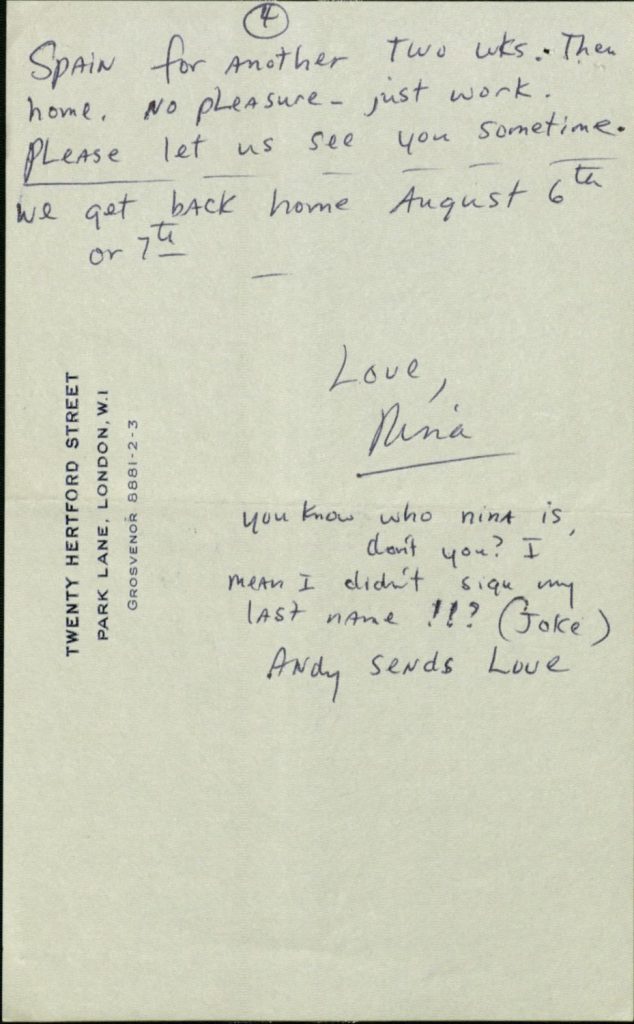 4
SPAIN for another two wks. Then
home. No pleasure - just work.
Please let us see you sometime.
We get back home August 6th
or 7th
Love,
Nina
you know who Nina is,
don't you? I
mean I didn't sign my
last name !!? (Joke)
Andy sends Love
TWENTY HERTFORD STREET
PARK LANE, LONDON, W.1
GROSVENOR 8881-2-3